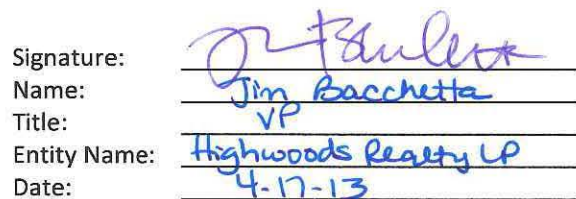 Signature:
Name: Jim Bacchetta
Title: VP
Entity Name: Highwoods Realty LP
Date: 4-17-13